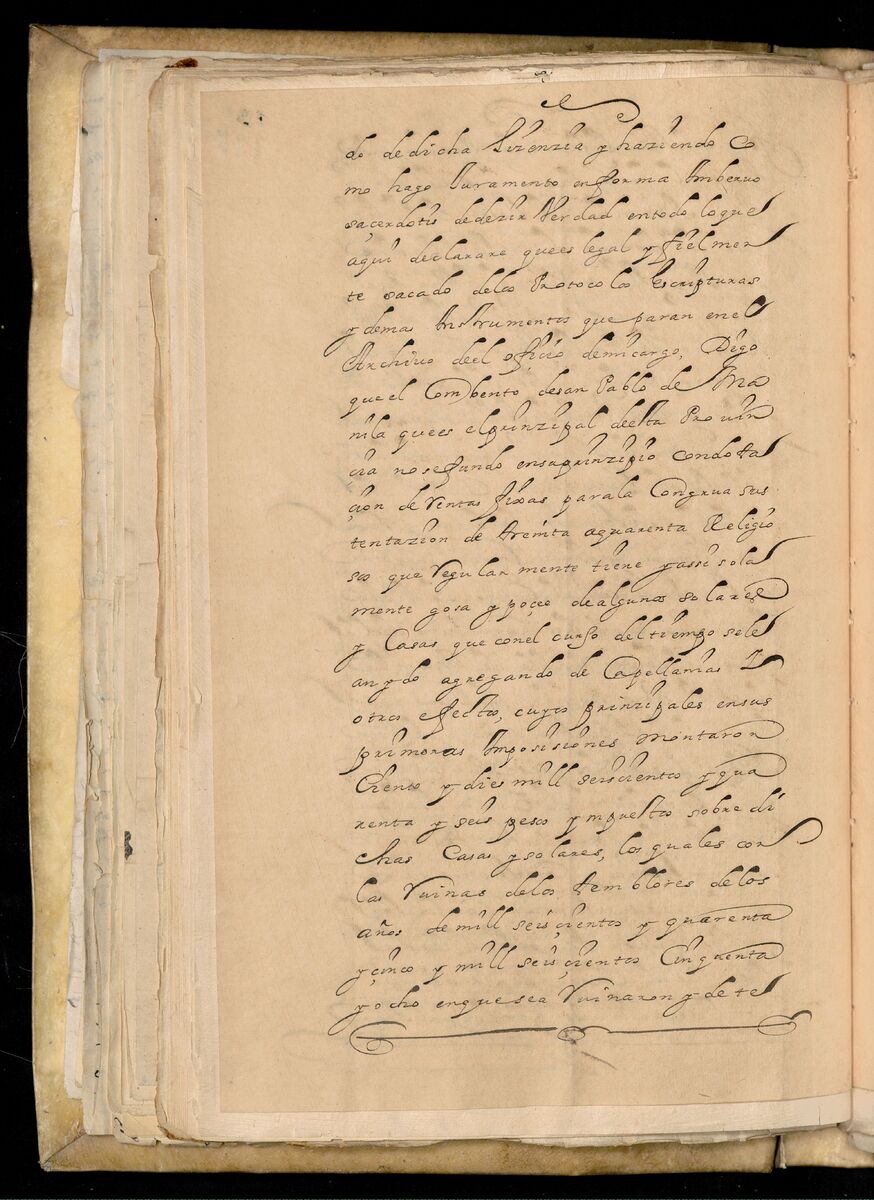 do de dicha lizenzia y haziendo Co
mo hago Juramento en forma Inberuo
saçerdotis de dezir Verdad en todo lo que
aqui declarare que es legal y fielmen
te sacado delos Protocolos Escripturas
y demas Instrumentos que paran en el
Archiuo deel ofiçio demicargo, Digo
que el Combento desan Pablo de Ma
nila que es el prinzipal deesta Prouin
çia no se fundo en su prinzipio con dota
çion de Rentas fixas para la Congrua sus
tentazion de treinta a quarenta Religio
sos que Regular mente tiene y assi sola
mente gosa y poçee de algunos solares
y Casas que con el curso del tiempo sele
an ydo agregando de Capellanias I
otros efectos, cuyos prinzipales en sus
primeras Imposisiones montaron
Ciento y dies mill seiscientos y qua
renta y seis pesos ympuestos sobre di
chas Casas y solares, los quales con
las Ruinas delos temblores delos
años de mill seisçientos y quarenta
y çinco y mill seisçientos Cinquenta
y ocho en que sea Ruinaron y de te